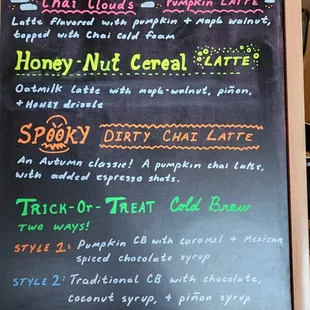 Chai Clouds Pumpkin Latte
Latte flavored with pumpkin + maple walnut,
topped with Chai cold foam
Honey-Nut Cereal LATTE
Oatmilk Latte with maple-walnut, piñon,
+ HONEY drizzle
SPOOKY DIRTY CHAI LATTE
An Autumn classic! A pumpkin chai latte,
with added espresso shots.
TRICK-Or-TREAT Cold Brew
TWO WAYS!
STYLE 1: Pumpkin CB with caramel + Mexican
spiced chocolate syrup
STYLE 2: Traditional CB with chocolate,
coconut syrup, + piñon syrup